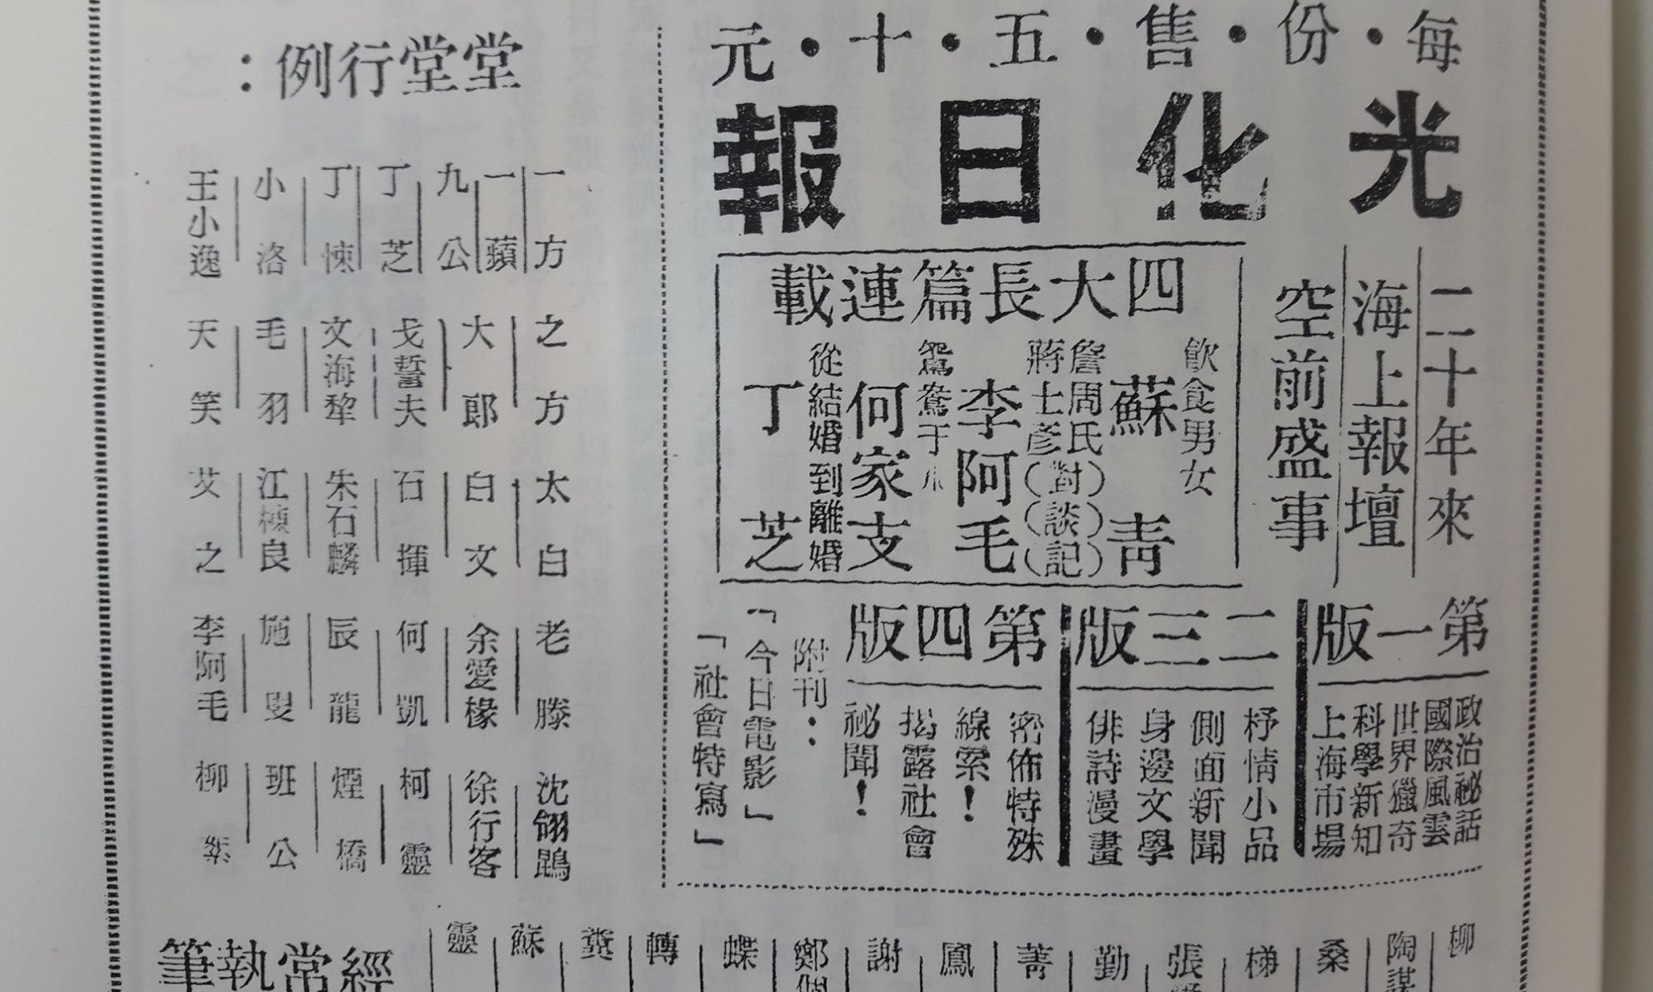 每・份・售・五・十・元
光化日報
二十年來
海上報壇
空前盛事
四大長篇連載
飲食男女
蘇青
詹周氏
蔣士彥（對）（談）（記）
李阿毛
鴛鴦于
何家支
從結婚到離婚
丁芝
第一版
政治祕話
國際風雲
世界獵奇
科學新知
上海市場
二三版
抒情小品
側面新聞
身邊文學
俳詩漫畫
第四版
密佈特殊
線索！
揭露社會
祕聞！
附刊：
「今日電影」
「社會特寫」
堂堂行例：
一方
一蘋
九公
丁芝
丁悚
小洛
王小逸
之方
大郎
戈誓夫
文海犂
毛羽
天笑
太白
白文
石揮
朱石麟
江棟良
艾之
老滕
余愛椽
何凱
辰龍
施叟
李阿毛
沈翎鵾
徐行客
柯靈
煙橋
班公
柳絮
柳
陶謀
桑
梯
張
勤
菁
鳳
謝
鄭
蝶
轉
蘇
靈
經常執筆